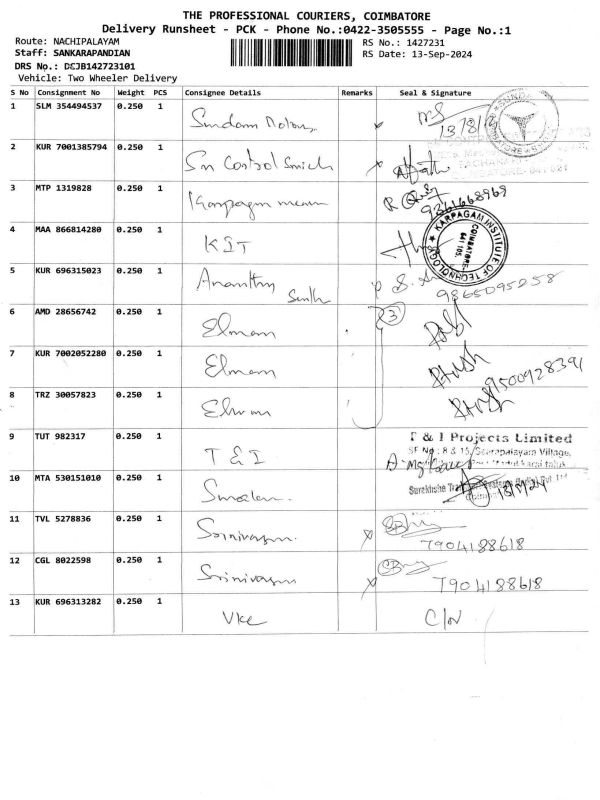 THE PROFESSIONAL COURIERS, COIMBATORE
Delivery Runsheet - PCK - Phone No.:0422-3505555 - Page No.:1
Route: NACHIPALAYAM RS No.: 1427231
Staff: SANKARAPANDIAN RS Date: 13-Sep-2024
DRS No.: DCJB142723101
Vehicle: Two Wheeler Delivery
S No Consignment No Weight PCS Consignee Details Remarks Seal & Signature
1 SLM 354494537 0.250 1 Sundaram Motors
2 KUR 7001385794 0.250 1 Sri Control Switch
3 MTP 1319828 0.250 1 9361668969
4 MAA 866814280 0.250 1 KIT KARPAGAM INSTITUTE OF TECHNOLOGY COIMBATORE- 641 105.
5 KUR 696315023 0.250 1 9865095258
6 AMD 28656742 0.250 1 Elmam 3
7 KUR 7002052280 0.250 1 Elmam 9500928391
8 TRZ 30057823 0.250 1 Elmam
9 TUT 982317 0.250 1 T & I T & I Projects Limited
SF No : 8 & 15, Seerapalayam Village,
10 MTA 530151010 0.250 1
11 TVL 5278836 0.250 1 Srinivasan 7904188618
12 CGL 8022598 0.250 1 Srinivasan 7904188618
13 KUR 696313282 0.250 1 Vke C/N